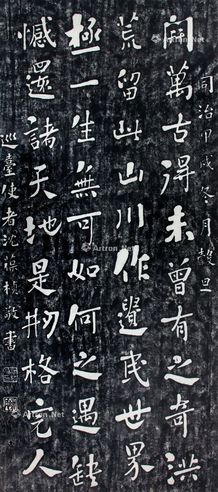 開萬古得未曾有之奇洪
荒留此山川作遺民世界
極一生無可如何之遇缺
憾還諸天地是刱格完人
同治甲戌冬月穀旦
巡臺使者沈葆楨敬書
Artron.Net